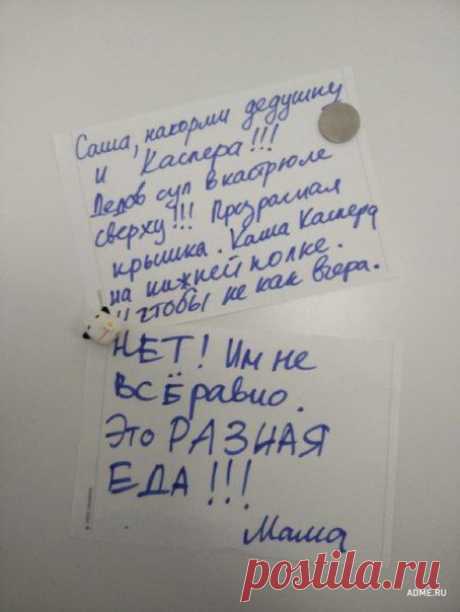 Саша, накорми дедушку
и Каспера!!!
Дедов суп в кастрюле
сверху!!! Прозрачная
крышка. Каша Каспера
на нижней полке.
И чтобы не как вчера.
НЕТ! Им не
ВСЁ равно.
Это РАЗНАЯ
ЕДА!!!
Мама
postila.ru
ADME.RU